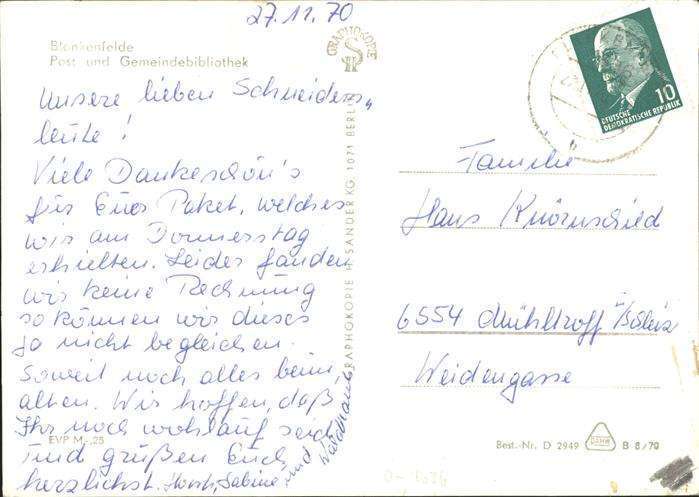 27.11.70
Blankenfelde
Post und Gemeindebibliothek
Unsere lieben Schneiders-
leute!
Viele Dankeschön's
für Euer Paket, welches
wir am Donnerstag
erhielten. Leider fanden
wir keine Rechnung
so können wir dieses
ja nicht begleichen.
Soweit noch alles beim
alten. Wir hoffen, daß
Ihr noch wohlauf seid
und grüßen Euch
herzlichst. Horst, Sabine
und
EVP M -,25
GRAPHOKOPIE H. SANDER KG 1071 BERLIN
GRAPHOKOPIE
10
DEUTSCHE
DEMOKRATISCHE REPUBLIK
Familie
Hans
6554 Mühltroff
Weidengasse
Best.-Nr. D 2949
B 8/70